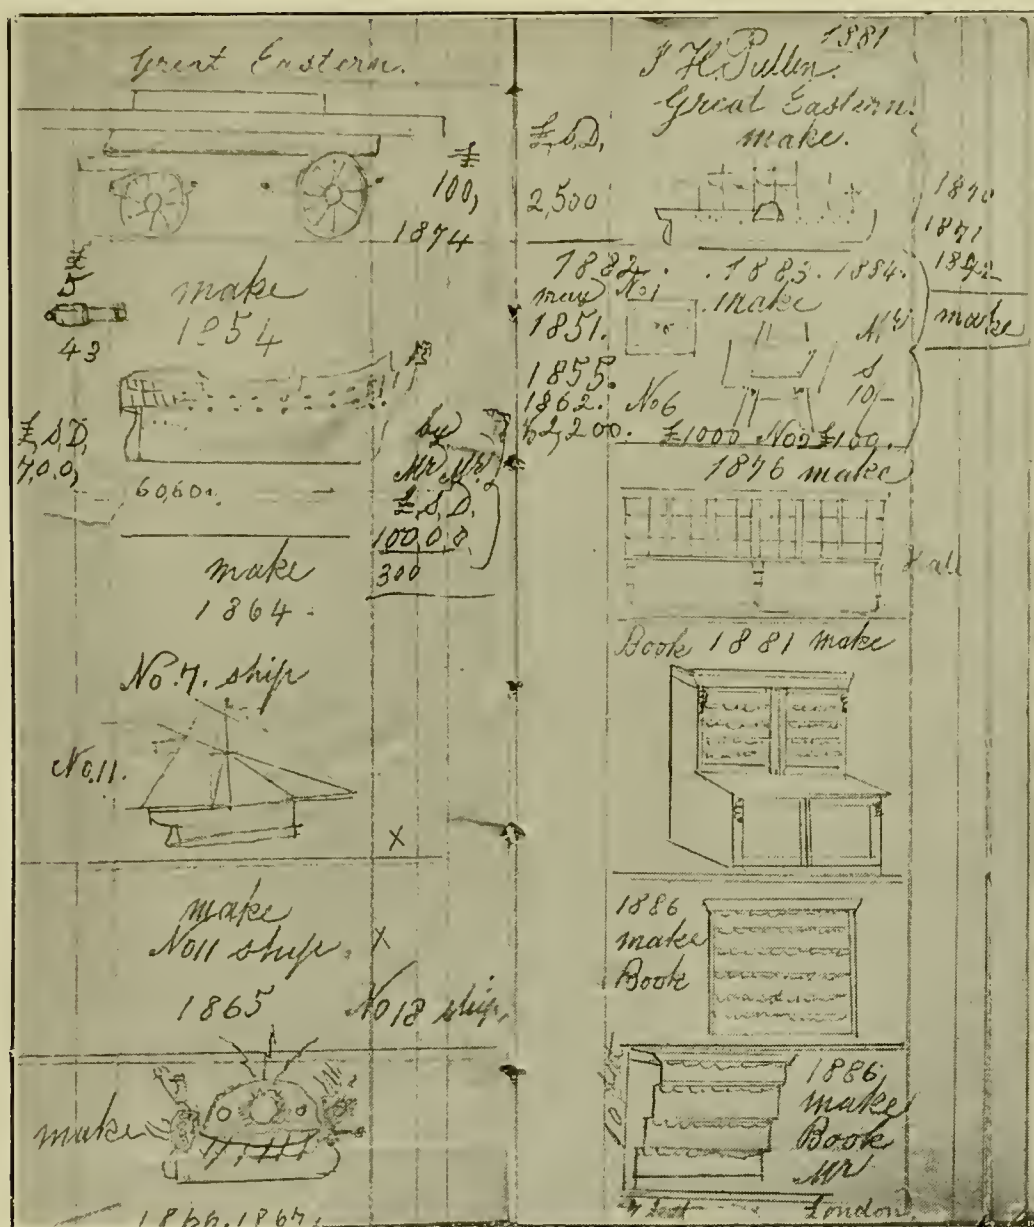 Great Eastern.
£
100,
1874
£
5
43
make
1854
£,S,D,
7,0,0,
60,60
by
Mr Mr
£,S,D,
100,0,0
300
make
1864.
No. 7. ship
No. 11.
X
make
No 11 ship. X
1865
No 18 ship.
make
1866. 1867.
1881
J H. Pullen.
Great Eastern.
make.
£,S,D,
2,500
1870
1871
1872
make
1882. 1883. 1884.
No 1 make
1851.
1855.
1862. No 6
2,200. £1000 No 2 £100.
S
10,-
1876 make
Book 1881 make
1886
make
Book
1886
make
Book
Mr
London.